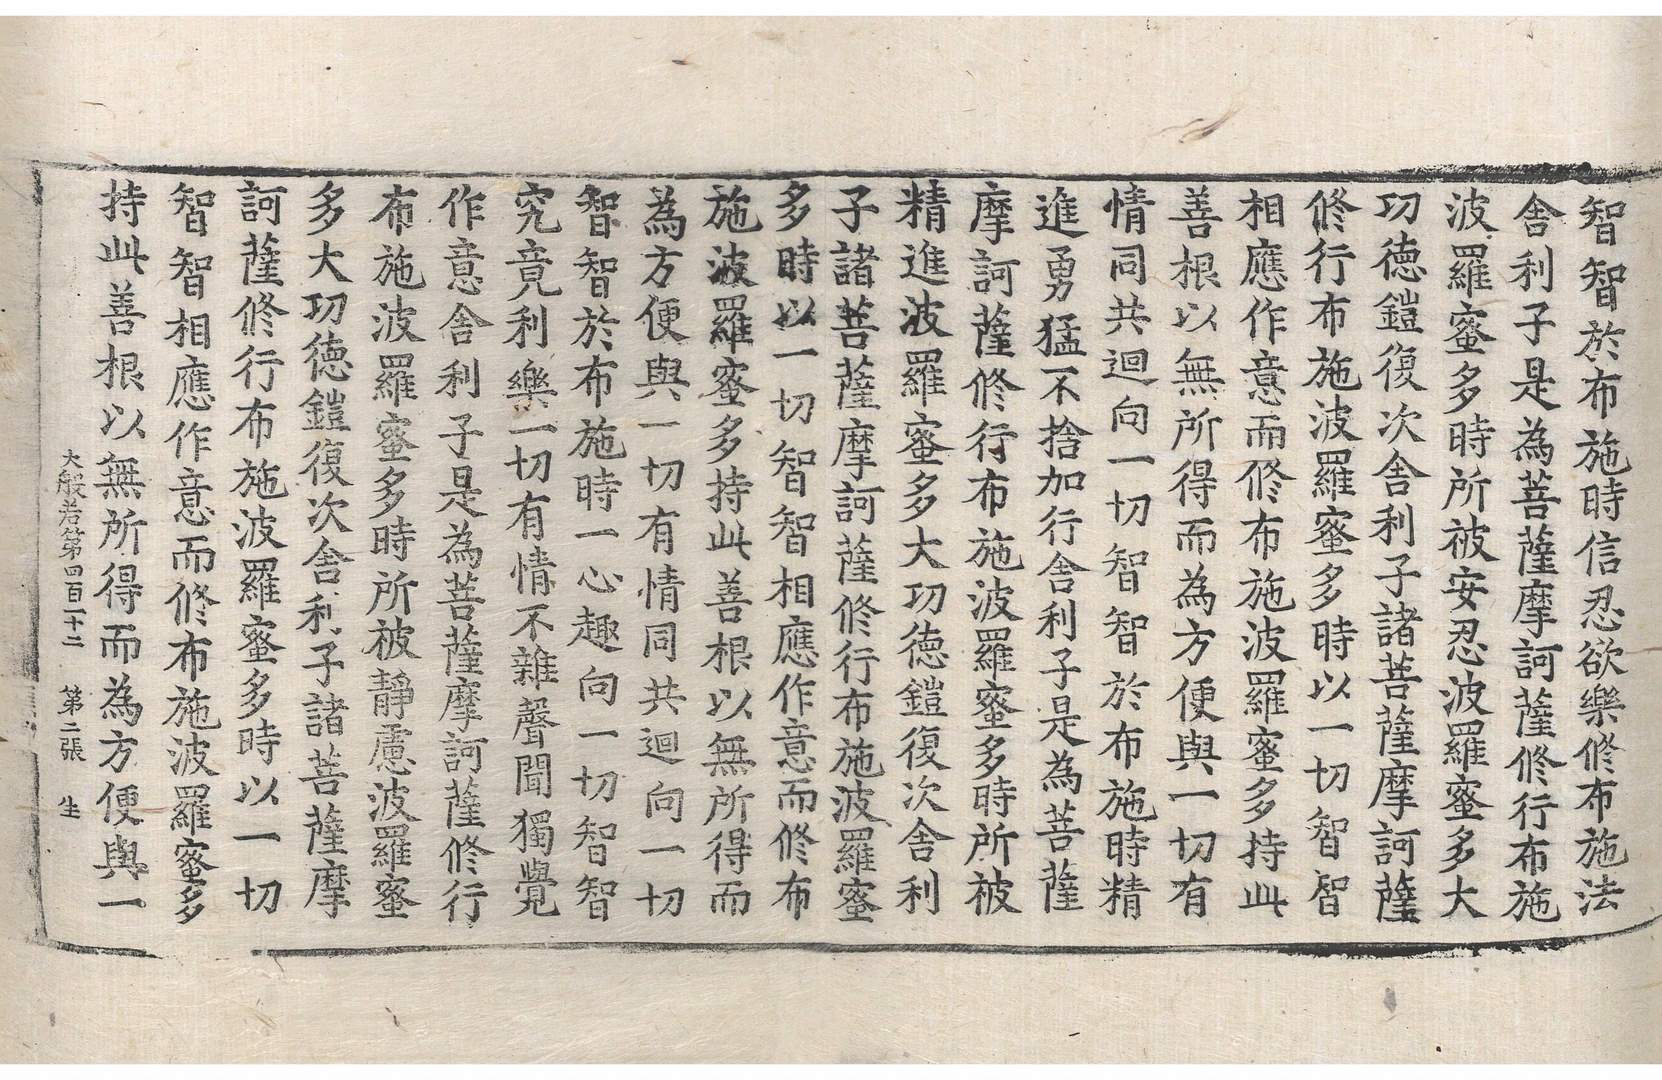 智智於布施時信忍欲樂修布施法
舍利子是為菩薩摩訶薩修行布施
波羅蜜多時所被安忍波羅蜜多大
功德鎧復次舍利子諸菩薩摩訶薩
修行布施波羅蜜多時以一切智智
相應作意而修布施波羅蜜多持此
善根以無所得而為方便與一切有
情同共迴向一切智智於布施時精
進勇猛不捨加行舍利子是為菩薩
摩訶薩修行布施波羅蜜多時所被
精進波羅蜜多大功德鎧復次舍利
子諸菩薩摩訶薩修行布施波羅蜜
多時以一切智智相應作意而修布
施波羅蜜多持此善根以無所得而
為方便與一切有情同共迴向一切
智智於布施時一心趣向一切智智
究竟利樂一切有情不雜聲聞獨覺
作意舍利子是為菩薩摩訶薩修行
布施波羅蜜多時所被靜慮波羅蜜
多大功德鎧復次舍利子諸菩薩摩
訶薩修行布施波羅蜜多時以一切
智智相應作意而修布施波羅蜜多
持此善根以無所得而為方便與一
大般若第四百一十二 第二張 生